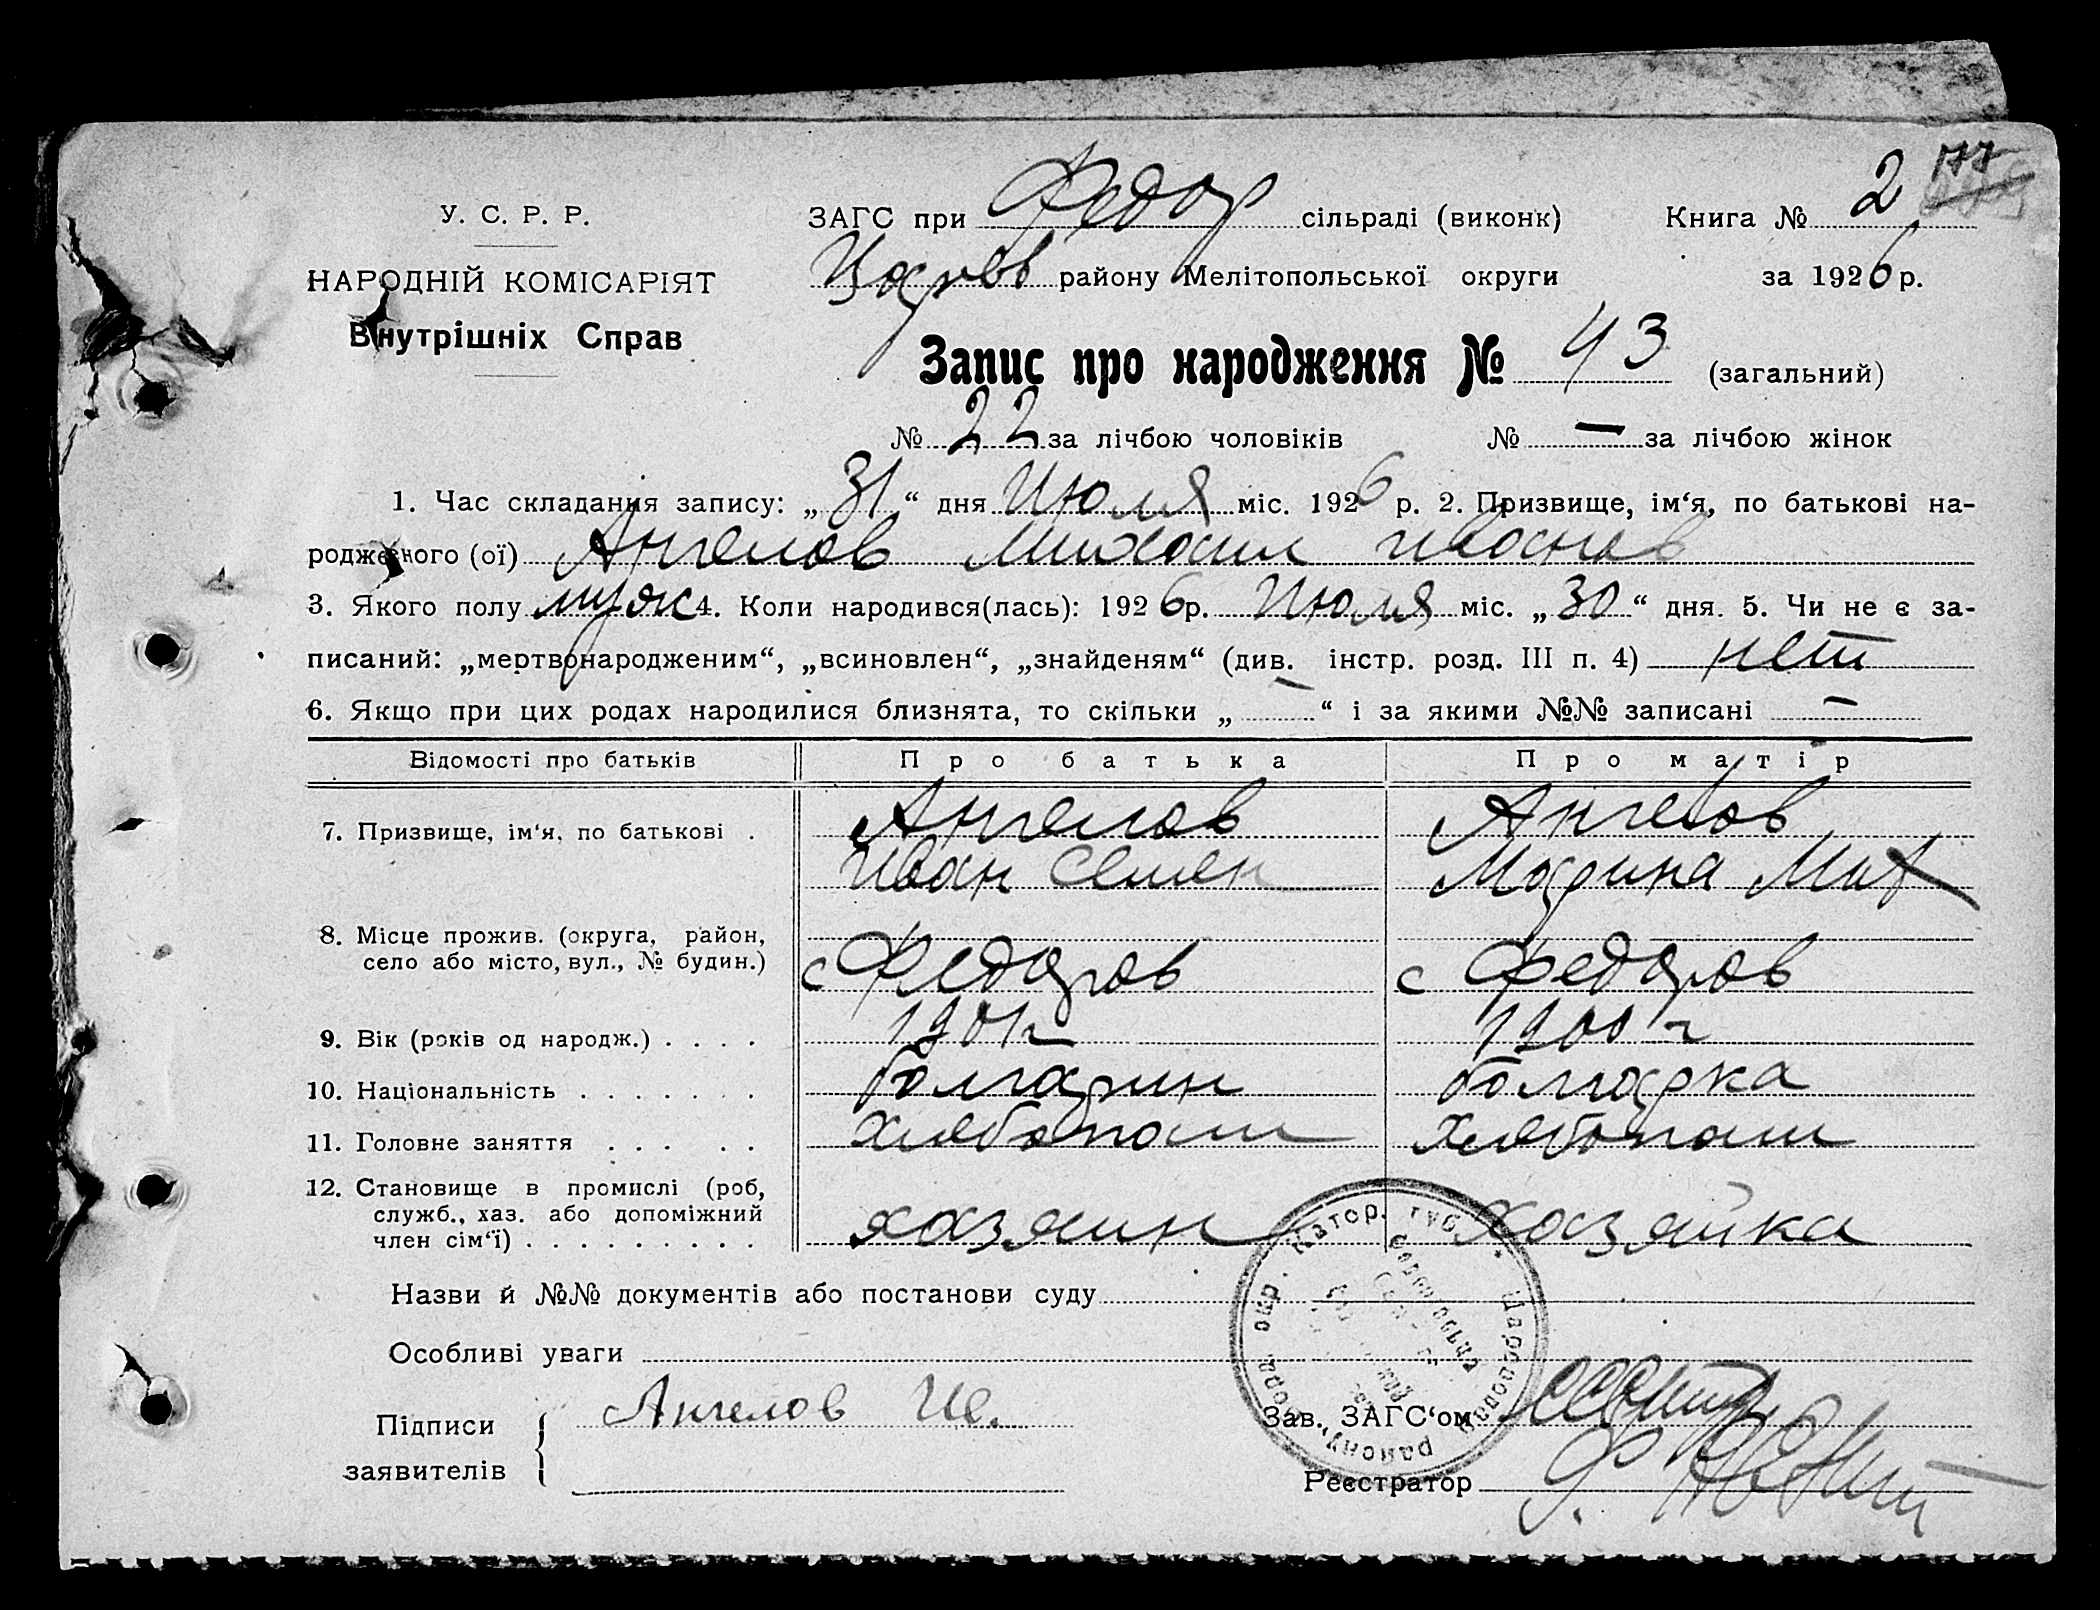 177
У. С. Р. Р.
ЗАГС при Федор сільраді (виконк) Книга № 2
НАРОДНІЙ КОМІСАРІЯТ
Царев району Мелітопольської округи за 1926 р.
Внутрішніх Справ
Запис про народження № 43 (загальний)
№ 22 за лічбою чоловіків № — за лічбою жінок
1. Час складання запису: „31“ дня Июля міс. 1926 р. 2. Призвище, ім‘я, по батькові на-
родженого (ої) Ангелов Михаил Иванов
3. Якого полу муж 4. Коли народився(лась): 1926 р. Июля міс. „30“ дня. 5. Чи не є за-
писаний: „мертвонародженим“, „всиновлен“, „знайденям“ (див. інстр. розд. III п. 4) нет
6. Якщо при цих родах народилися близнята, то скільки „—“ і за якими №№ записані —
Відомості про батьків Про батька Про матір
7. Призвище, ім‘я, по батькові . Ангелов Ангелов
Иван Семен Марина Мих
8. Місце прожив. (округа, район,
село або місто, вул., № будин.) с Федоров с Федоров
9. Вік (років од народж.) . . . . 1901 г 1900 г
10. Національність . . . . . . . болгарин болгарка
11. Головне заняття . . . . . хлебопаш хлебопаш
12. Становище в промислі (роб,
служб., хаз. або допоміжний
член сім‘ї) . . . . . . . . . хазяин хазяйка
Назви й №№ документів або постанови суду
Особливі уваги
Підписи
заявителів
Ангелов Ив.
Зав. ЗАГС‘ом
Реєстратор